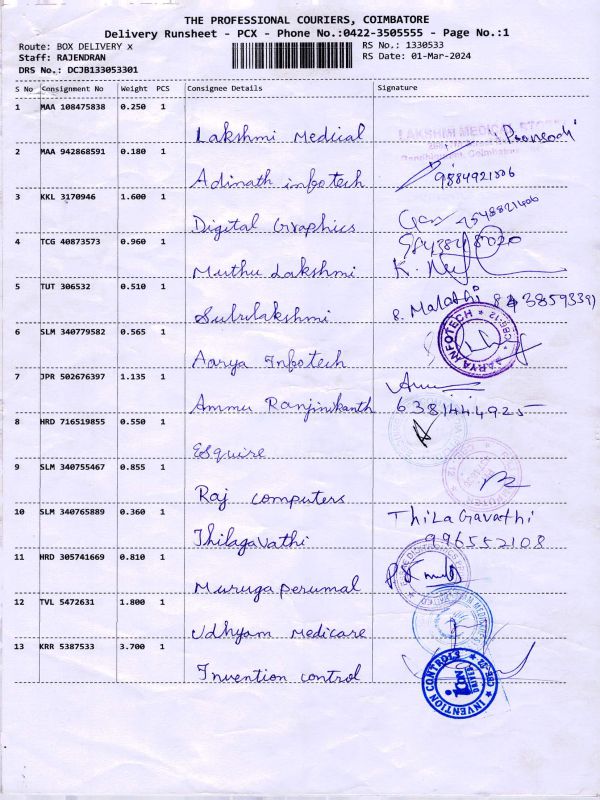 THE PROFESSIONAL COURIERS, COIMBATORE
Delivery Runsheet - PCX - Phone No.:0422-3505555 - Page No.:1
Route: BOX DELIVERY x RS No.: 1330533
Staff: RAJENDRAN RS Date: 01-Mar-2024
DRS No.: DCJB133053301
S No Consignment No Weight PCS Consignee Details Signature
1 MAA 108475838 0.250 1
Lakshmi Medical LAKSHMI MEDICAL
2 MAA 942868591 0.180 1
Adinath infotech
3 KKL 3170946 1.600 1
Digital Graphics
4 TCG 40873573 0.960 1
Muthu Lakshmi
5 TUT 306532 0.510 1
Subulakshmi
6 SLM 340779582 0.565 1
Aarya Infotech AARYA INFOTECH * CBE-12 *
7 JPR 502676397 1.135 1
Ammu Ranjinikanth 6381444925
8 HRD 716519855 0.550 1
Esquire
9 SLM 340755467 0.855 1
Raj computers
10 SLM 340765889 0.360 1 ThilaGavathi
Thilagavathi 996552108
11 HRD 305741669 0.810 1
Muruga perumal
12 TVL 5472631 1.800 1
Udhyam Medicare
13 KRR 5387533 3.700 1
Invention control INVENTION CONTROLS * CBE-22 *